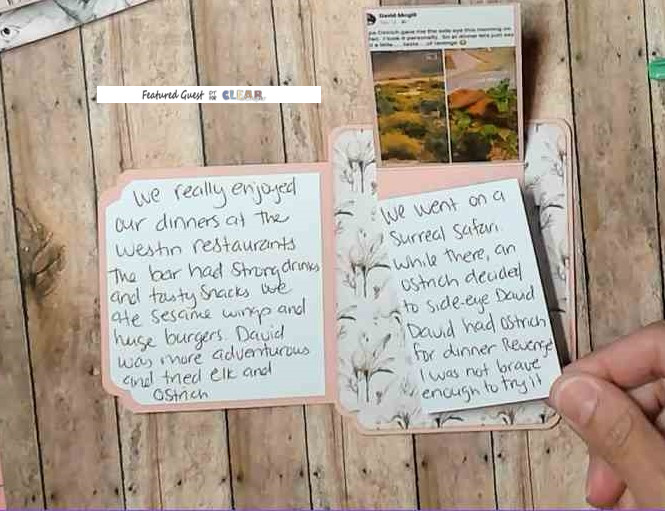 David Mcgill
Ostrich gave me the side eye this morning on
I took it personally. So at dinner lets just say
a little..... taste.... of revenge
Featured Guest OF THE CLEAR
We really enjoyed
our dinners at the
Westin restaurants
The bar had strong drinks
and tasty snacks We
ate sesame wings and
huge burgers. David
was more adventurous
and tried elk and
Ostrich
We went on a
Surreal Safari
While there, an
Ostrich decided
to side-eye David
David had Ostrich
for dinner Revenge
I was not brave
enough to try it